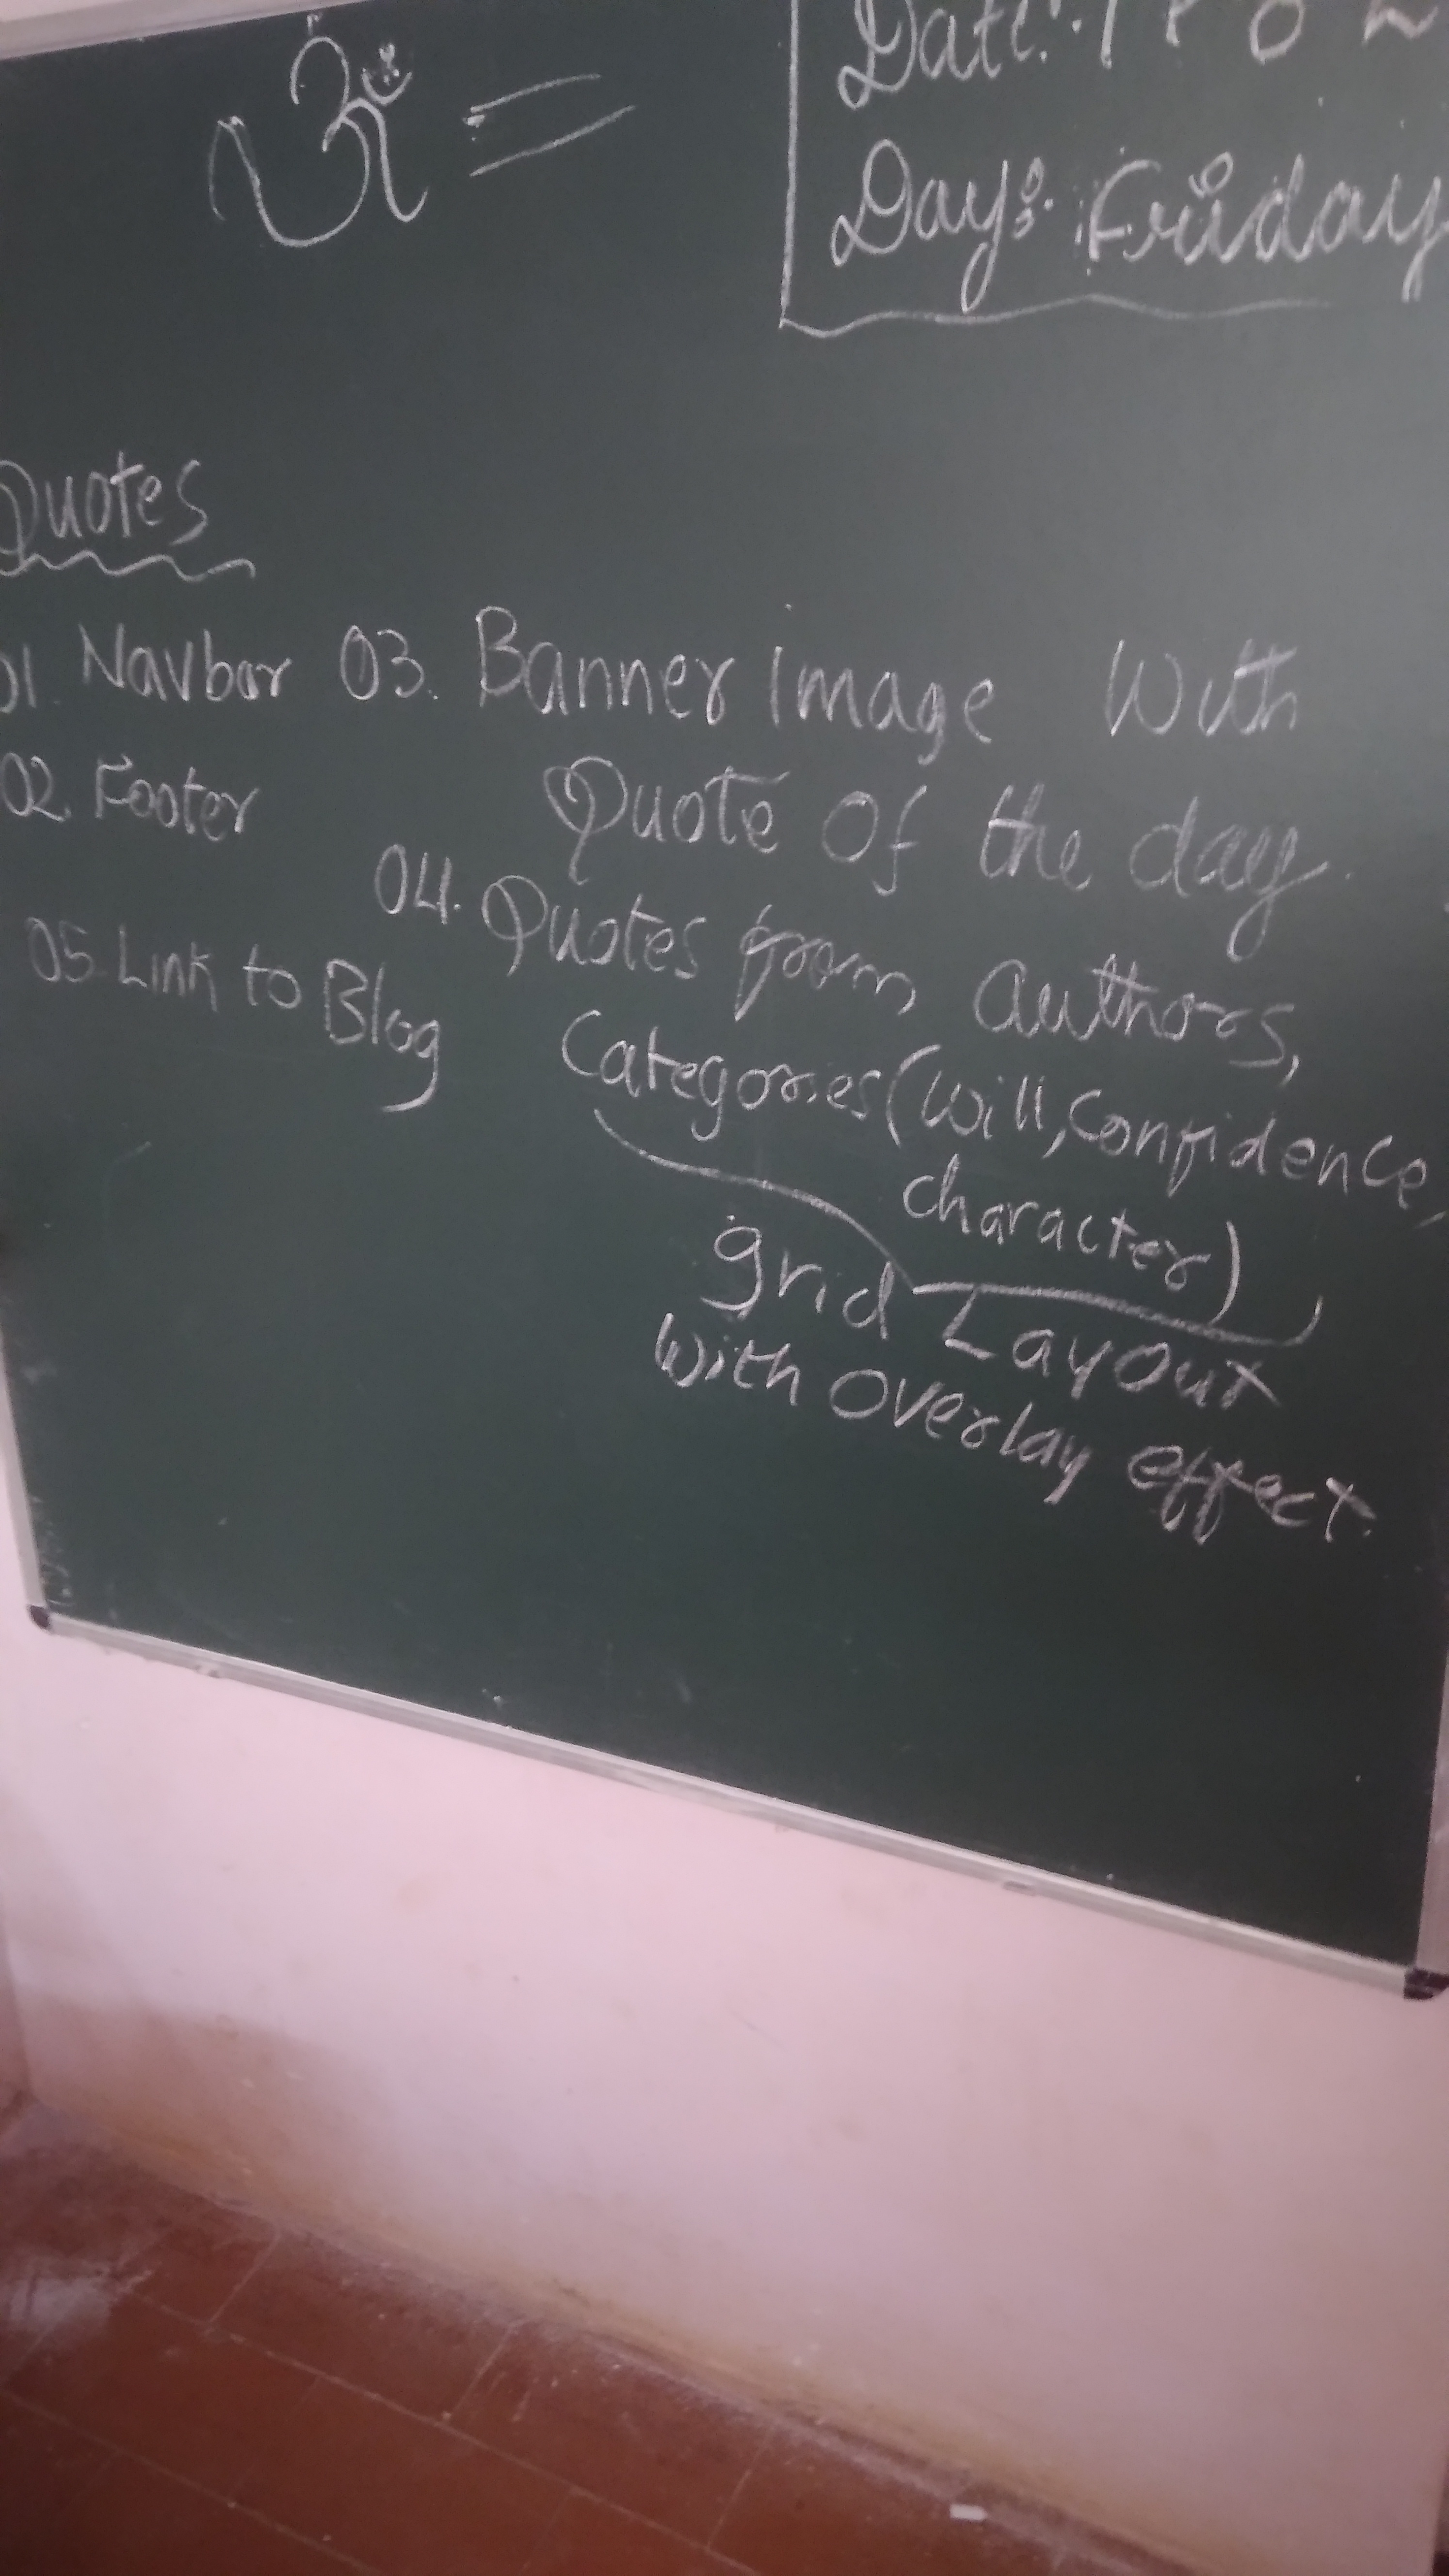 Day: Friday
Quotes
01. Navbar
02. Footer
03. Banner Image With
Quote Of the day.
04. Quotes from authors,
Categories (Will, Confidence,
character)
grid Layout
With Overlay effect.
05. Link to Blog